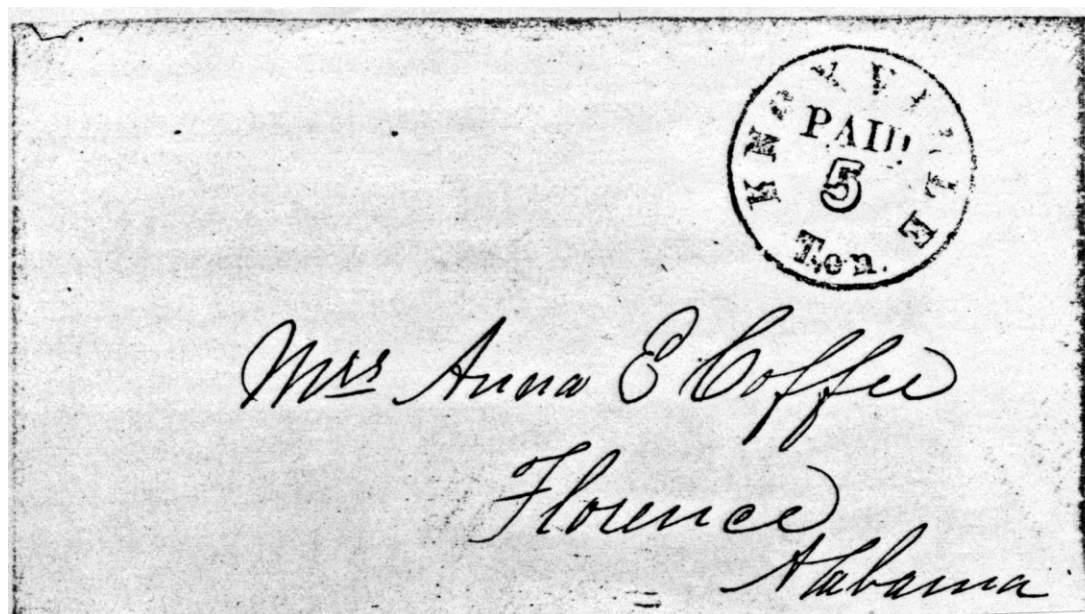 KNOXVILLE
PAID
5
Ten.
Mrs Anna E Coffee
Florence
Alabama